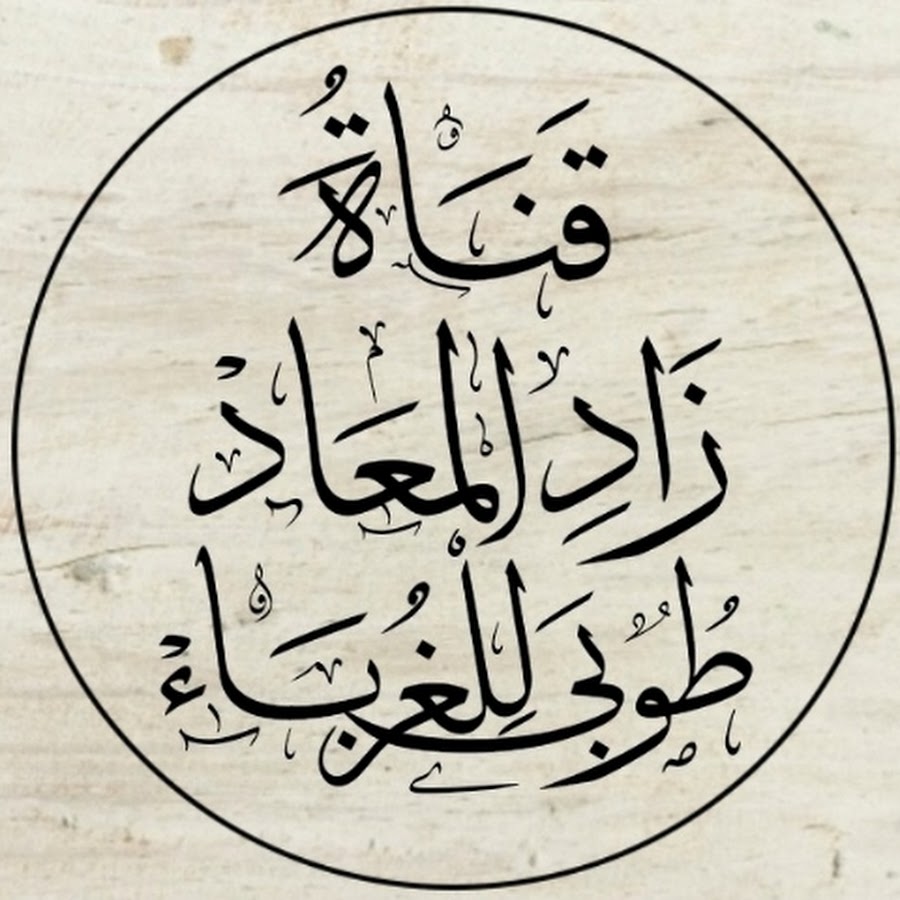 قَنَاةُ
زَادِ المعَادْ
طُوبَى لِلغُرُبَاءْ